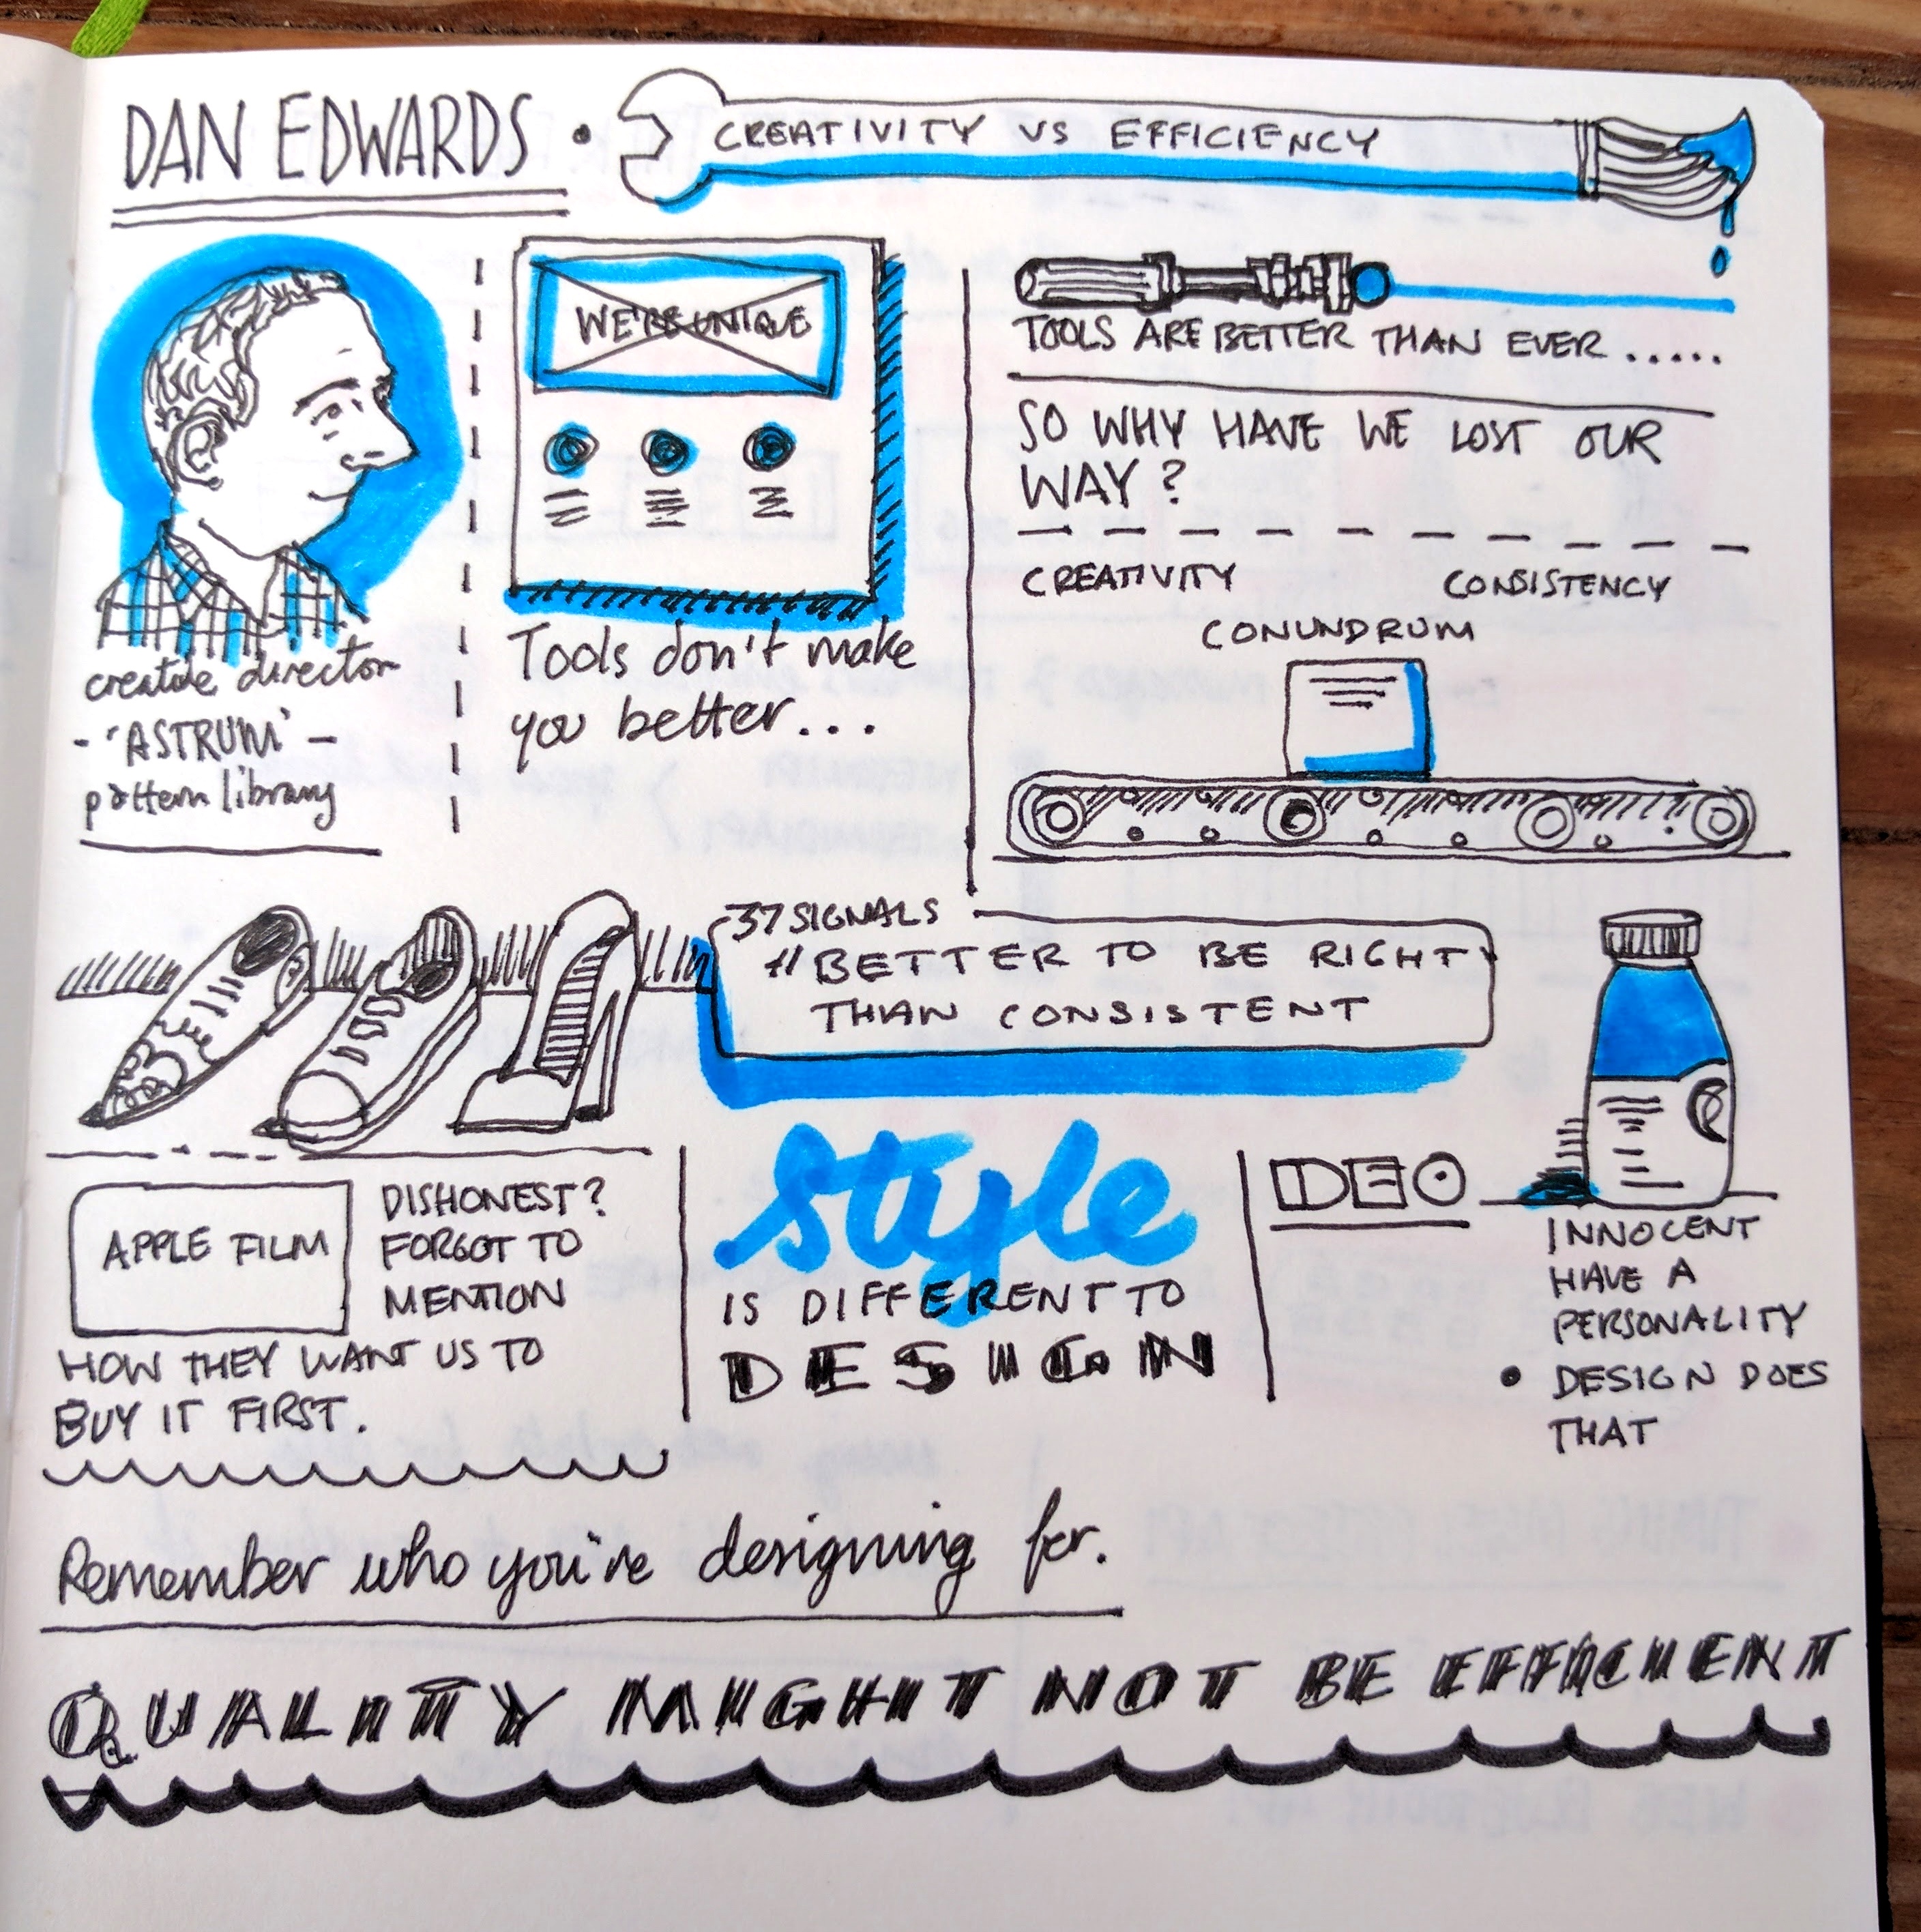 DAN EDWARDS • CREATIVITY VS EFFICIENCY
creative director
- 'ASTRUM' -
pattern library
WE'RE UNIQUE
Tools don't make
you better...
TOOLS ARE BETTER THAN EVER .....
SO WHY HAVE WE LOST OUR
WAY?
CREATIVITY CONSISTENCY
CONUNDRUM
37SIGNALS
"BETTER TO BE RIGHT
THAN CONSISTENT
APPLE FILM
DISHONEST?
FORGOT TO
MENTION
HOW THEY WANT US TO
BUY IT FIRST.
style
IS DIFFERENT TO
DESIGN
IDEO
INNOCENT
HAVE A
PERSONALITY
• DESIGN DOES
THAT
Remember who you're designing for.
QUALITY MIGHT NOT BE EFFICIENT